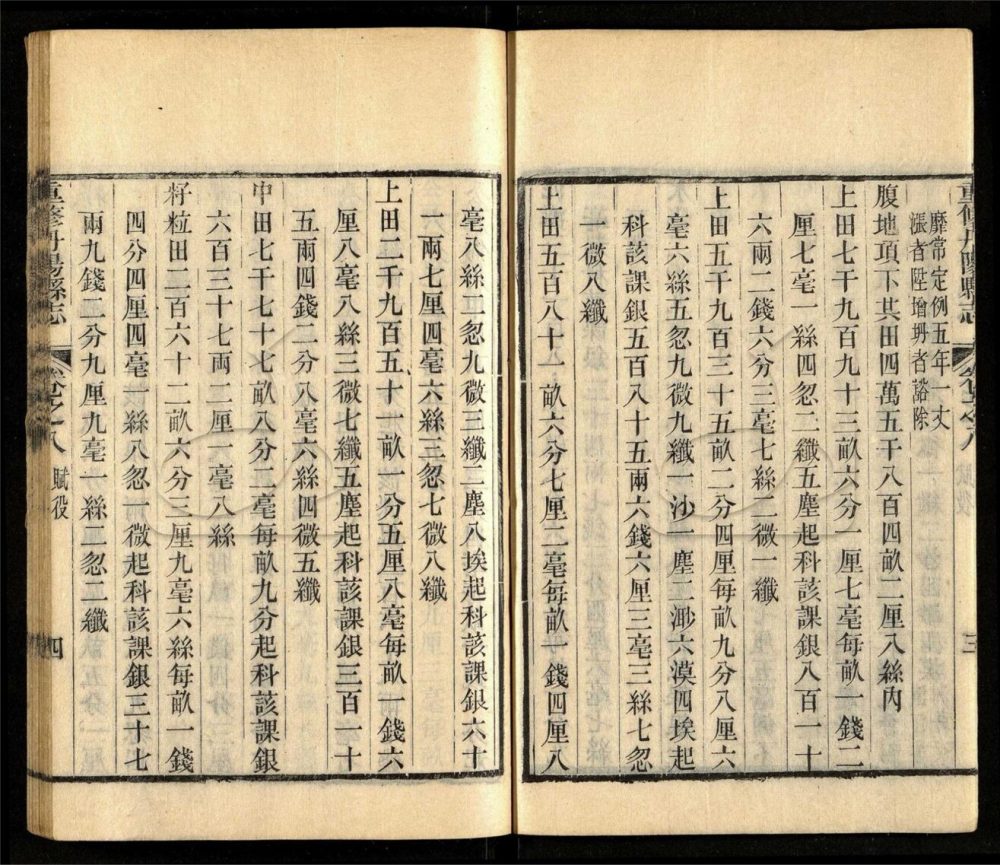 重修丹陽縣志 卷之八 賦役 三
靡常定例五年一丈
漲者陞增坍者豁除
腹地項下共田四萬五千八百四畝二厘八絲內
上田七千九百九十三畝六分一厘七毫每畝一錢二
厘七毫一絲四忽二纖五塵起科該課銀八百一十
六兩二錢六分三毫七絲二微一纖
上田五千九百三十五畝二分四厘每畝九分八厘六
毫六絲五忽九微九纖一沙一塵二渺六漠四埃起
科該課銀五百八十五兩六錢六厘三毫三絲七忽
一微八纖
上田五百八十一畝六分七厘二毫每畝一錢四厘八
毫八絲二忽九微三纖二塵八埃起科該課銀六十
一兩七厘四毫六絲三忽七微八纖
上田二千九百五十一畝一分五厘八毫每畝一錢六
厘八毫八絲三微七纖五塵起科該課銀三百一十
五兩四錢二分八毫六絲四微五纖
中田七千七十七畝八分二毫每畝九分起科該課銀
六百三十七兩二厘一毫八絲
籽粒田二百六十二畝六分三厘九毫六絲每畝一錢
四分四厘四毫四絲八忽一微起科該課銀三十七
兩九錢二分九厘九毫一絲二忽二纖
重修丹陽縣志 卷之八 賦役 四